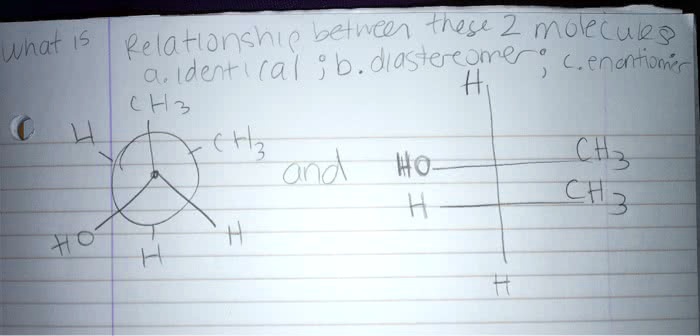 What is Relationship between these 2 molecules
a. identical ; b. diastereomer ; c. enantiomer
CH3
H
H
CH3
and
HO
CH3
H
CH3
HO
H
H
H